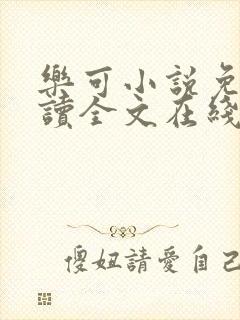 樂可小説免
讀全文在綫
傻妞請愛自己